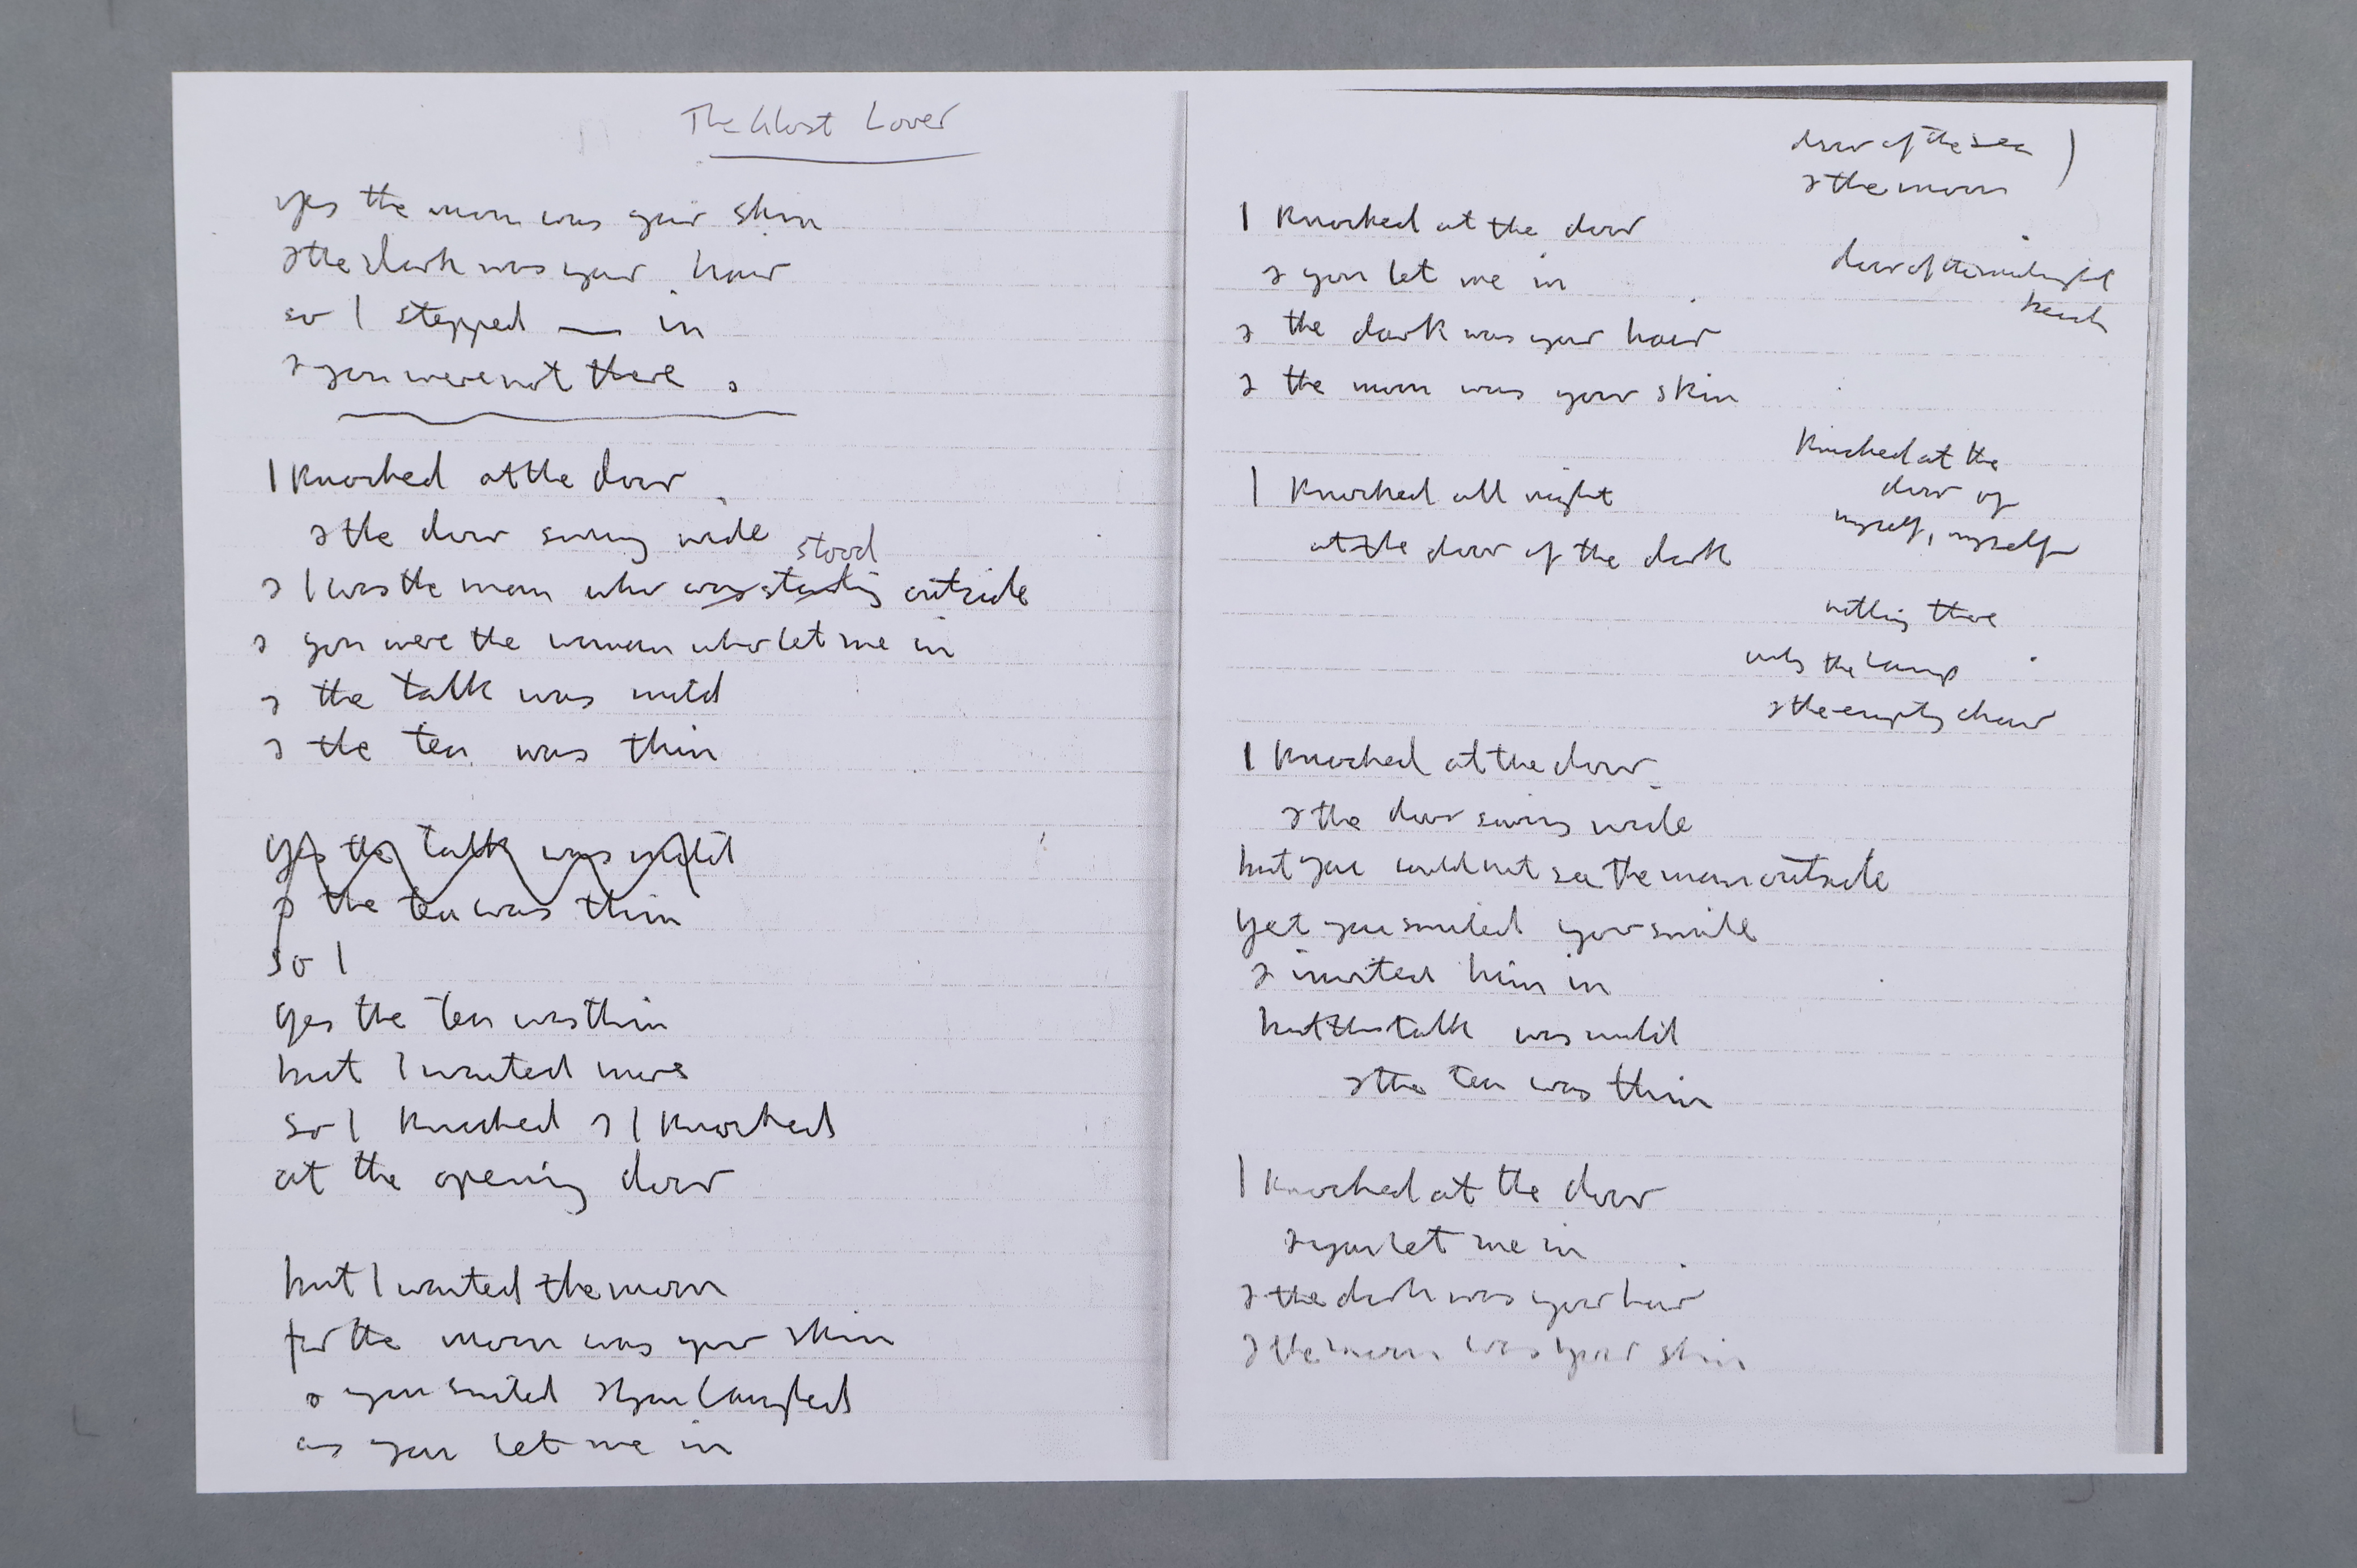 The Ghost Lover
yes the moon was your skin
& the dark was your hair
so I stepped — in
& you were not there.
I knocked at the door
& the door swung wide
stood
& I was the man who was standing outside
& you were the woman who let me in
& the talk was mild
& the tea was thin
yes the talk was mild
& the tea was thin
so I
yes the tea was thin
but I wanted more
so I knocked & I knocked
at the opening door
but I wanted the moon
for the moon was your skin
& you smiled & you laughed
as you let me in
door of the sea )
& the moon
I knocked at the door
& you let me in
door of the midnight
beach
& the dark was your hair
& the moon was your skin
knocked at the
door of
myself, myself
I knocked all night
at the door of the dark
nothing there
only the lamp
& the empty chair
I knocked at the door
& the door swung wide
but you could not see the man outside
yet you smiled your smile
& invited him in
but the talk was mild
& the tea was thin
I knocked at the door
& you let me in
& the dark was your hair
& the moon was your skin